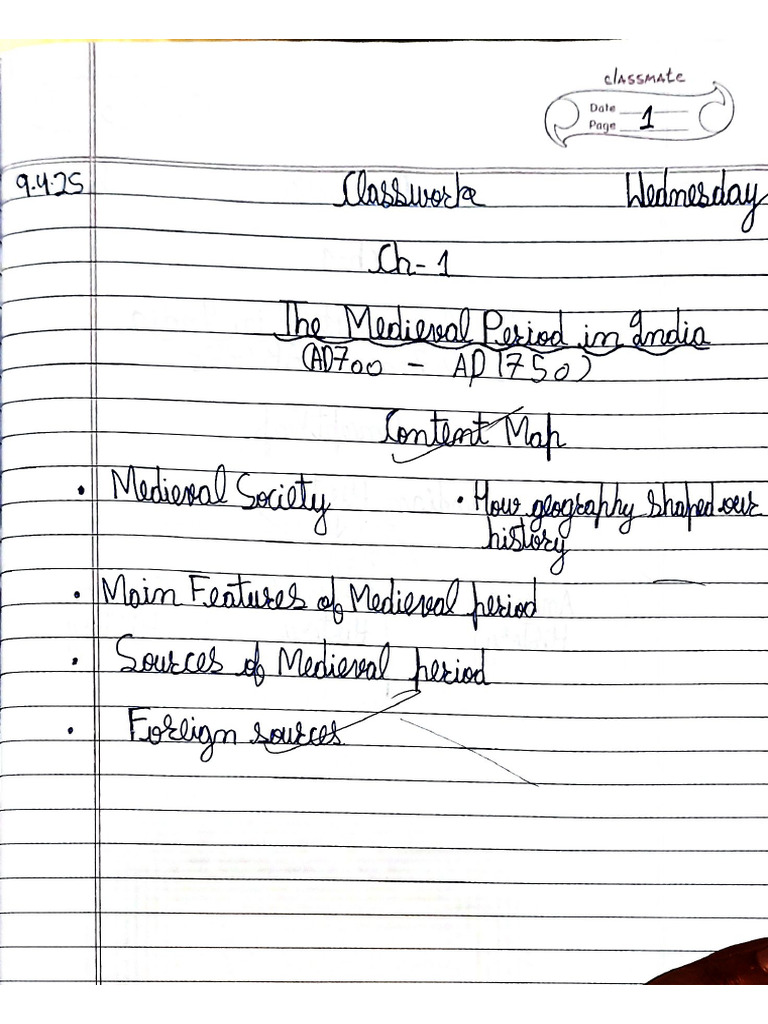 classmate
Date
Page 1
9.4.25 Classwork Wednesday
Ch-1
The Medieval Period in India
(AD700 - AD1750)
Content Map
• Medieval Society • How geography shaped our
history
• Main Features of Medieval period
• Sources of Medieval period
• Foreign sources